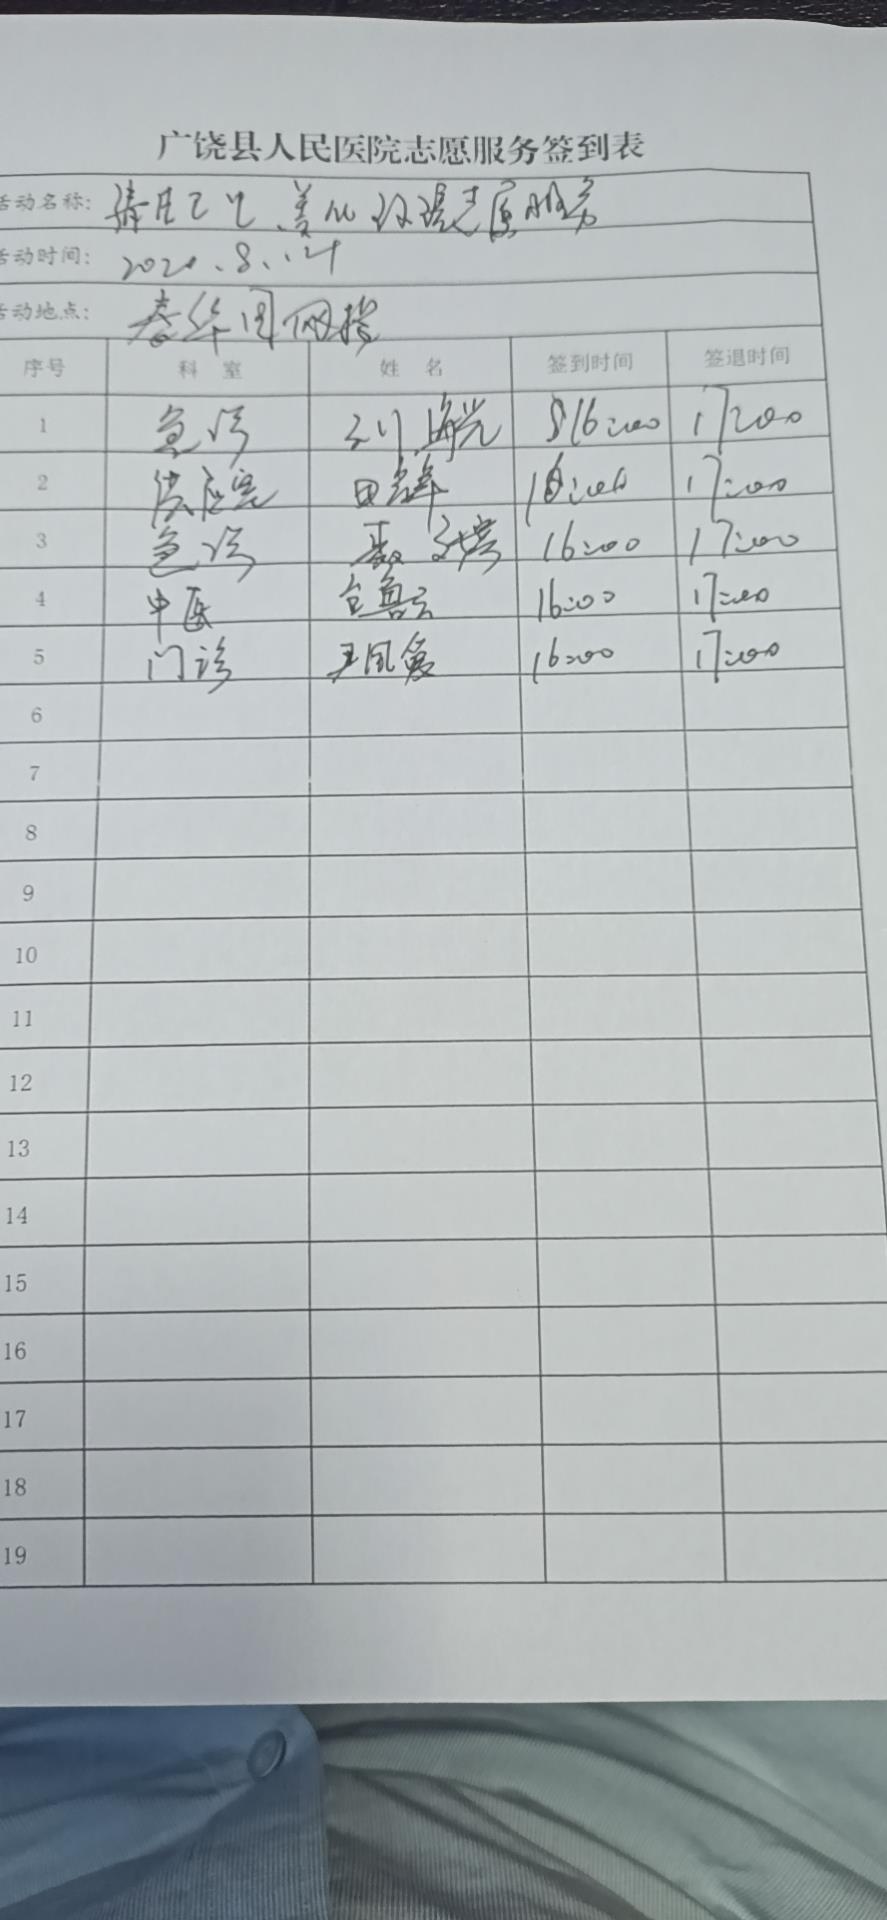 广饶县人民医院志愿服务签到表
活动名称: 美化环境志愿服务
活动时间: 202 .8.
活动地点: 春华园网格
序号 科 室 姓 名 签到时间 签退时间
1 急诊 刘海光 16:00 17:00
2 供应室 田 17:00
3 急诊 聂 16:00 17:00
4 中医 16:00 17:00
5 门诊 王凤爱 16:00 17:00
6
7
8
9
10
11
12
13
14
15
16
17
18
19